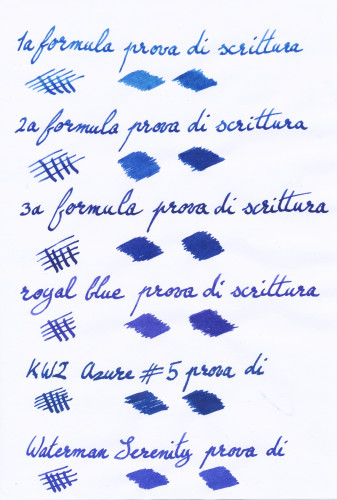 1a formula prova di scrittura
2a formula prova di scrittura
3a formula prova di scrittura
royal blue prova di scrittura
KWZ Azure #5 prova di
Waterman Serenity prova di